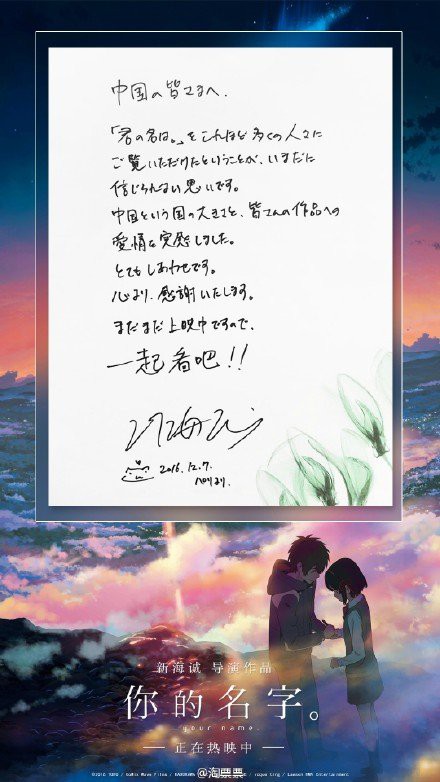 中国の皆さまへ.
「君の名は。」をこれほど多くの人々に
ご覧いただけたということが、いまだに
信じられない思いです。
中国という国の大きさと、皆さんの作品への
愛情を実感しました。
とてもしあわせです。
心より、感謝いたします。
まだまだ上映中ですので、
一起看吧!!
2016.12.7.
新海诚 导演作品
你的名字。
your name.
正在热映中
@淘票票